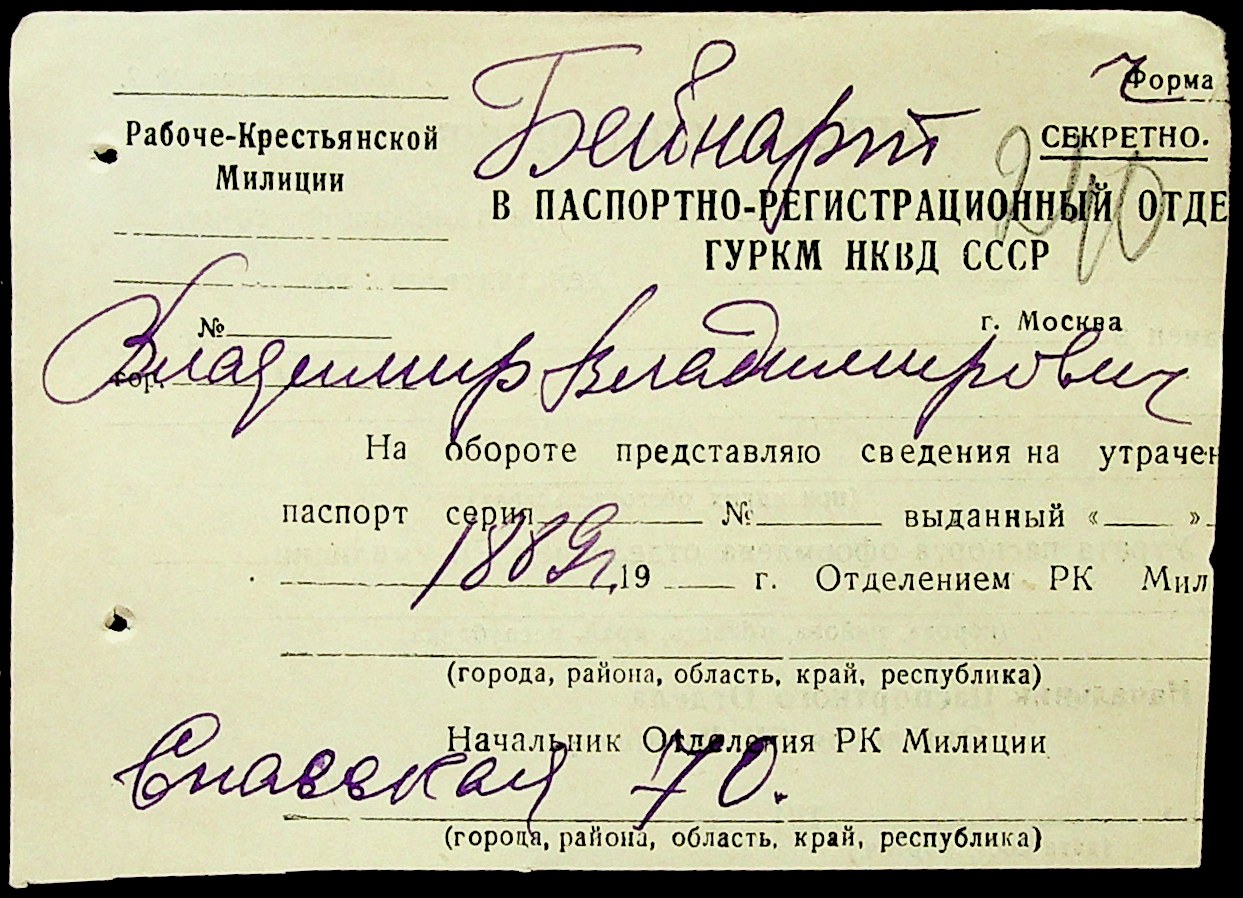 Форма
Бейнарт
Рабоче-Крестьянской
Милиции
СЕКРЕТНО.
240
В ПАСПОРТНО-РЕГИСТРАЦИОННЫЙ ОТДЕ
ГУРКМ НКВД СССР
№
г. Москва
гор.
Владимир Владимирович
На обороте представляю сведения на утрачен
паспорт серия № выданный « »
1889 г.
19 г. Отделением РК Мил
(города, района, область, край, республика)
Начальник Отделения РК Милиции
Спасская 70.
(города, района, область, край, республика)